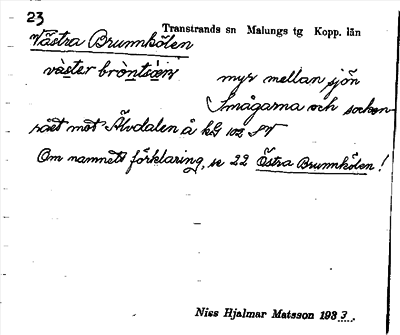 23
Transtrands sn Malungs tg Kopp. län
Västra Brunnkölen
väster bròntsæ̀n
myr mellan sjön
Smågarna och socken
rået mot Älvdalen å kG 102 SV
Om namnets förklaring, se 22 Östra Brunnkölen!
Niss Hjalmar Matsson 1933.